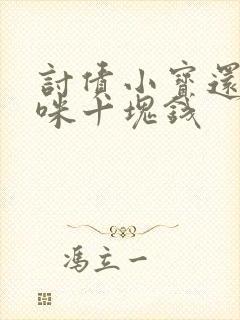 討債小寶還
咪十塊錢
馮立一